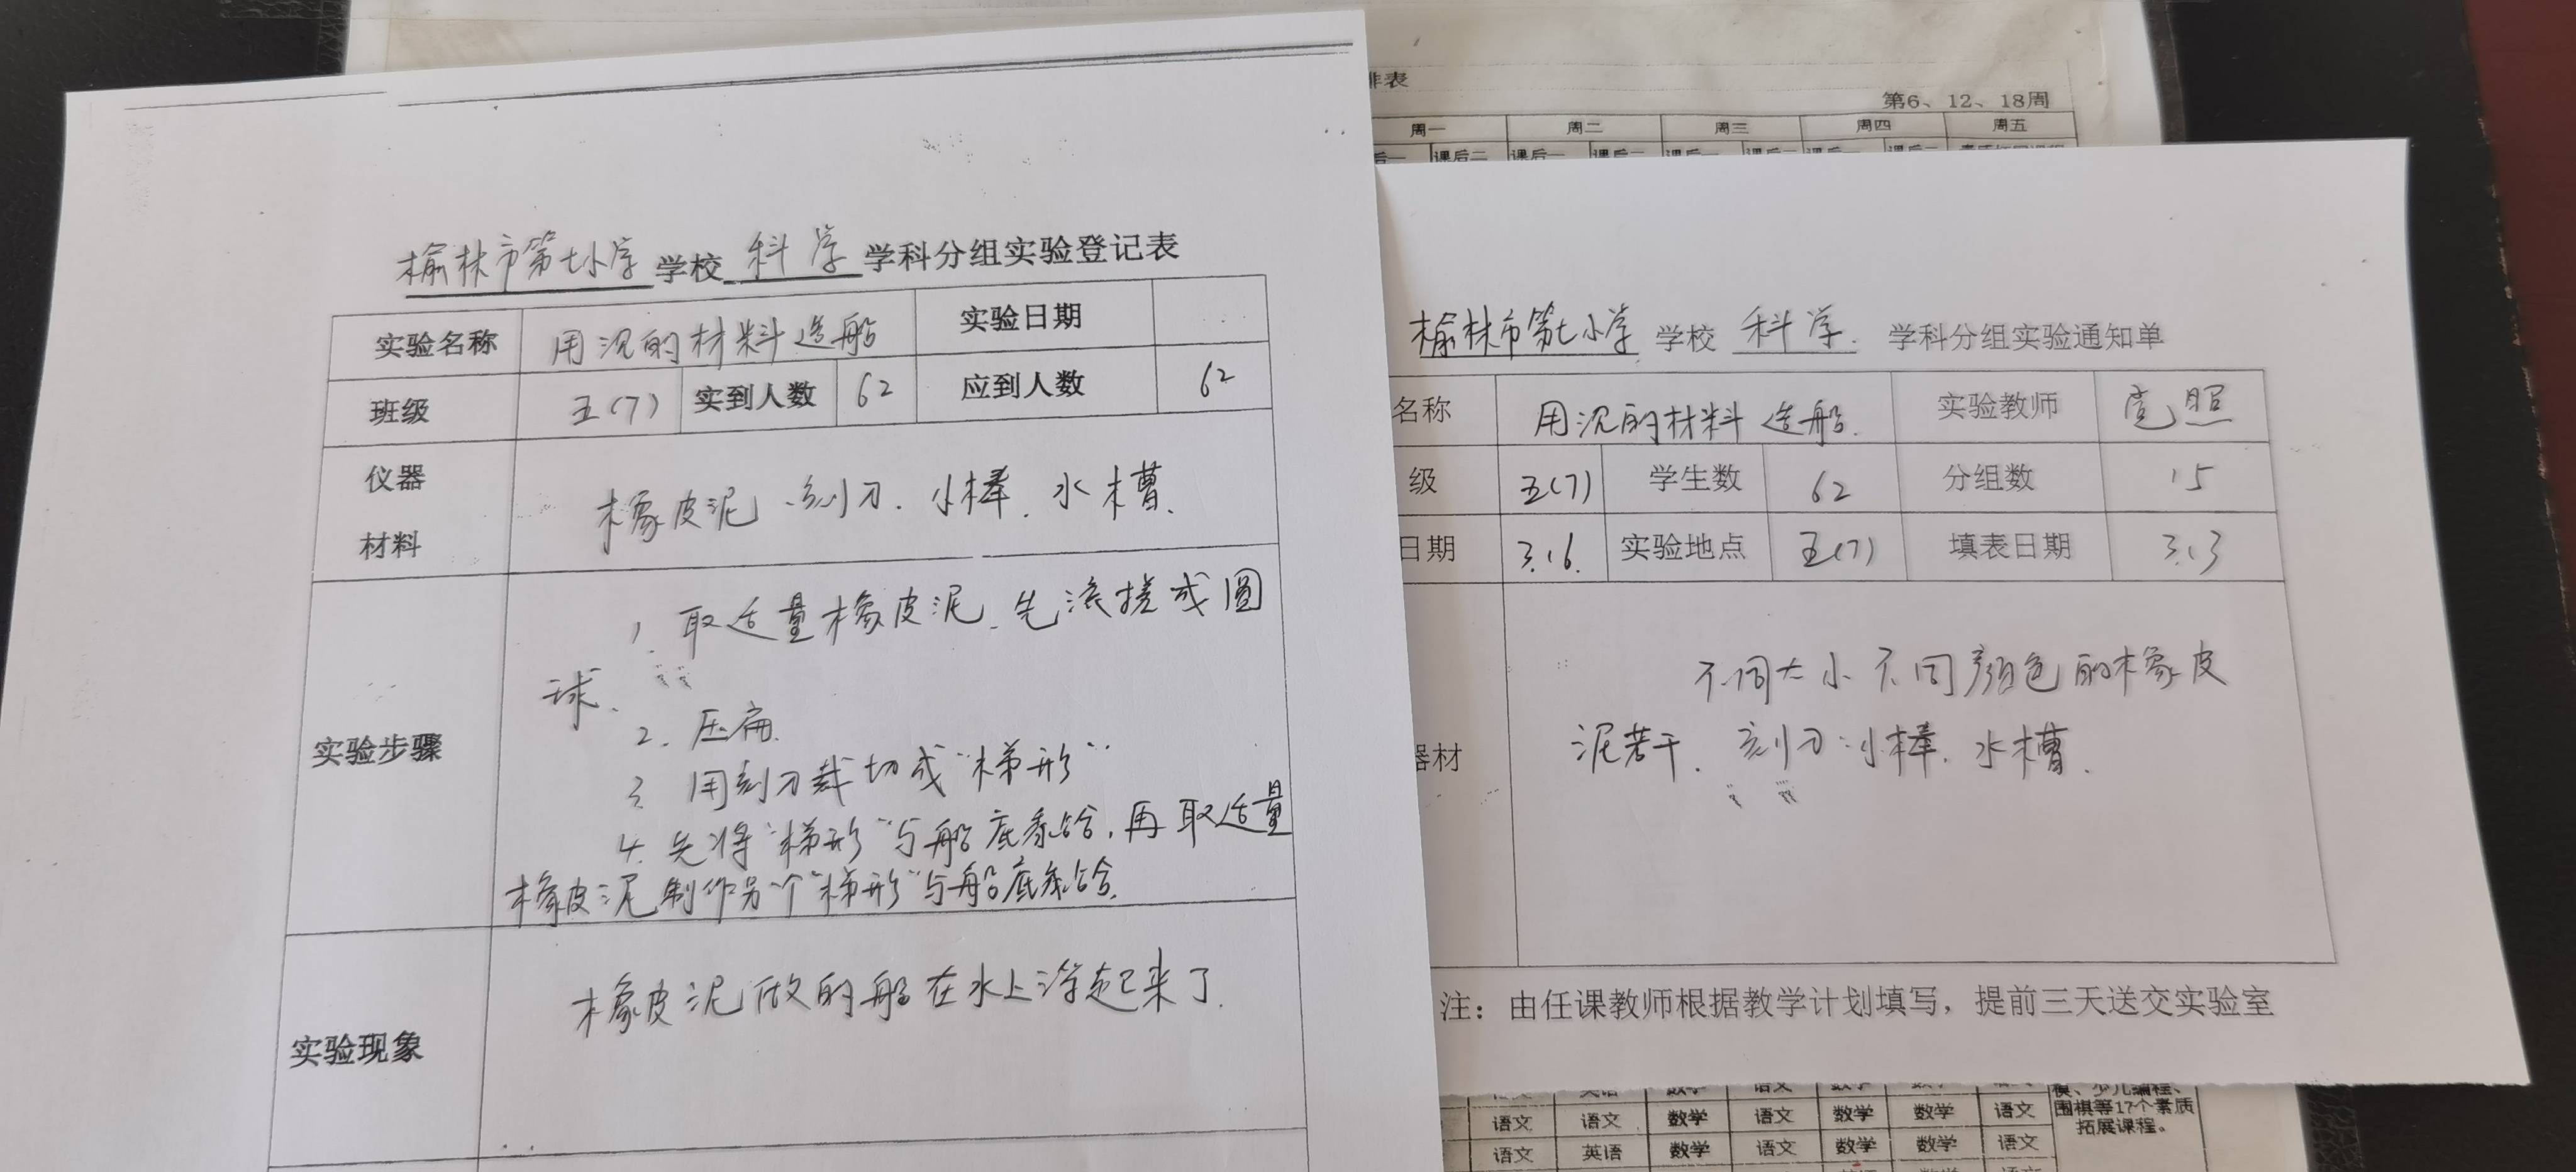 榆林市第七小学 学校 科学 学科分组实验登记表
实验名称 用沉的材料造船 实验日期
班级 五(7) 实到人数 62 应到人数 62
仪器
材料
橡皮泥、刻刀、小棒、水槽、
实验步骤
1、取适量橡皮泥、先滚搓成圆
球、
2、压扁、
3 用刻刀裁切成"梯形"
4、先将"梯形"与船底黏合,再取适量
橡皮泥制作另一个"梯形"与船底黏合、
实验现象
橡皮泥做的船在水上浮起来了、
排表
第6、12、18周
周一 周二 周三 周四 周五
课后二 课后一 课后二 课后一 课后二 课后一 课后二
榆林市第七小学 学校 科学 学科分组实验通知单
名称 用沉的材料造船、 实验教师 照
级 五(7) 学生数 62 分组数 15
日期 3.16. 实验地点 五(7) 填表日期 3.13
器材
不同大小不同颜色的橡皮
泥若干、刻刀、小棒、水槽、
注:由任课教师根据教学计划填写,提前三天送交实验室
模、少儿编程、
围棋等17个素质
拓展课程。
语文 语文 数学 语文 数学 数学 语文
语文 英语 数学 语文 数学 数学 语文